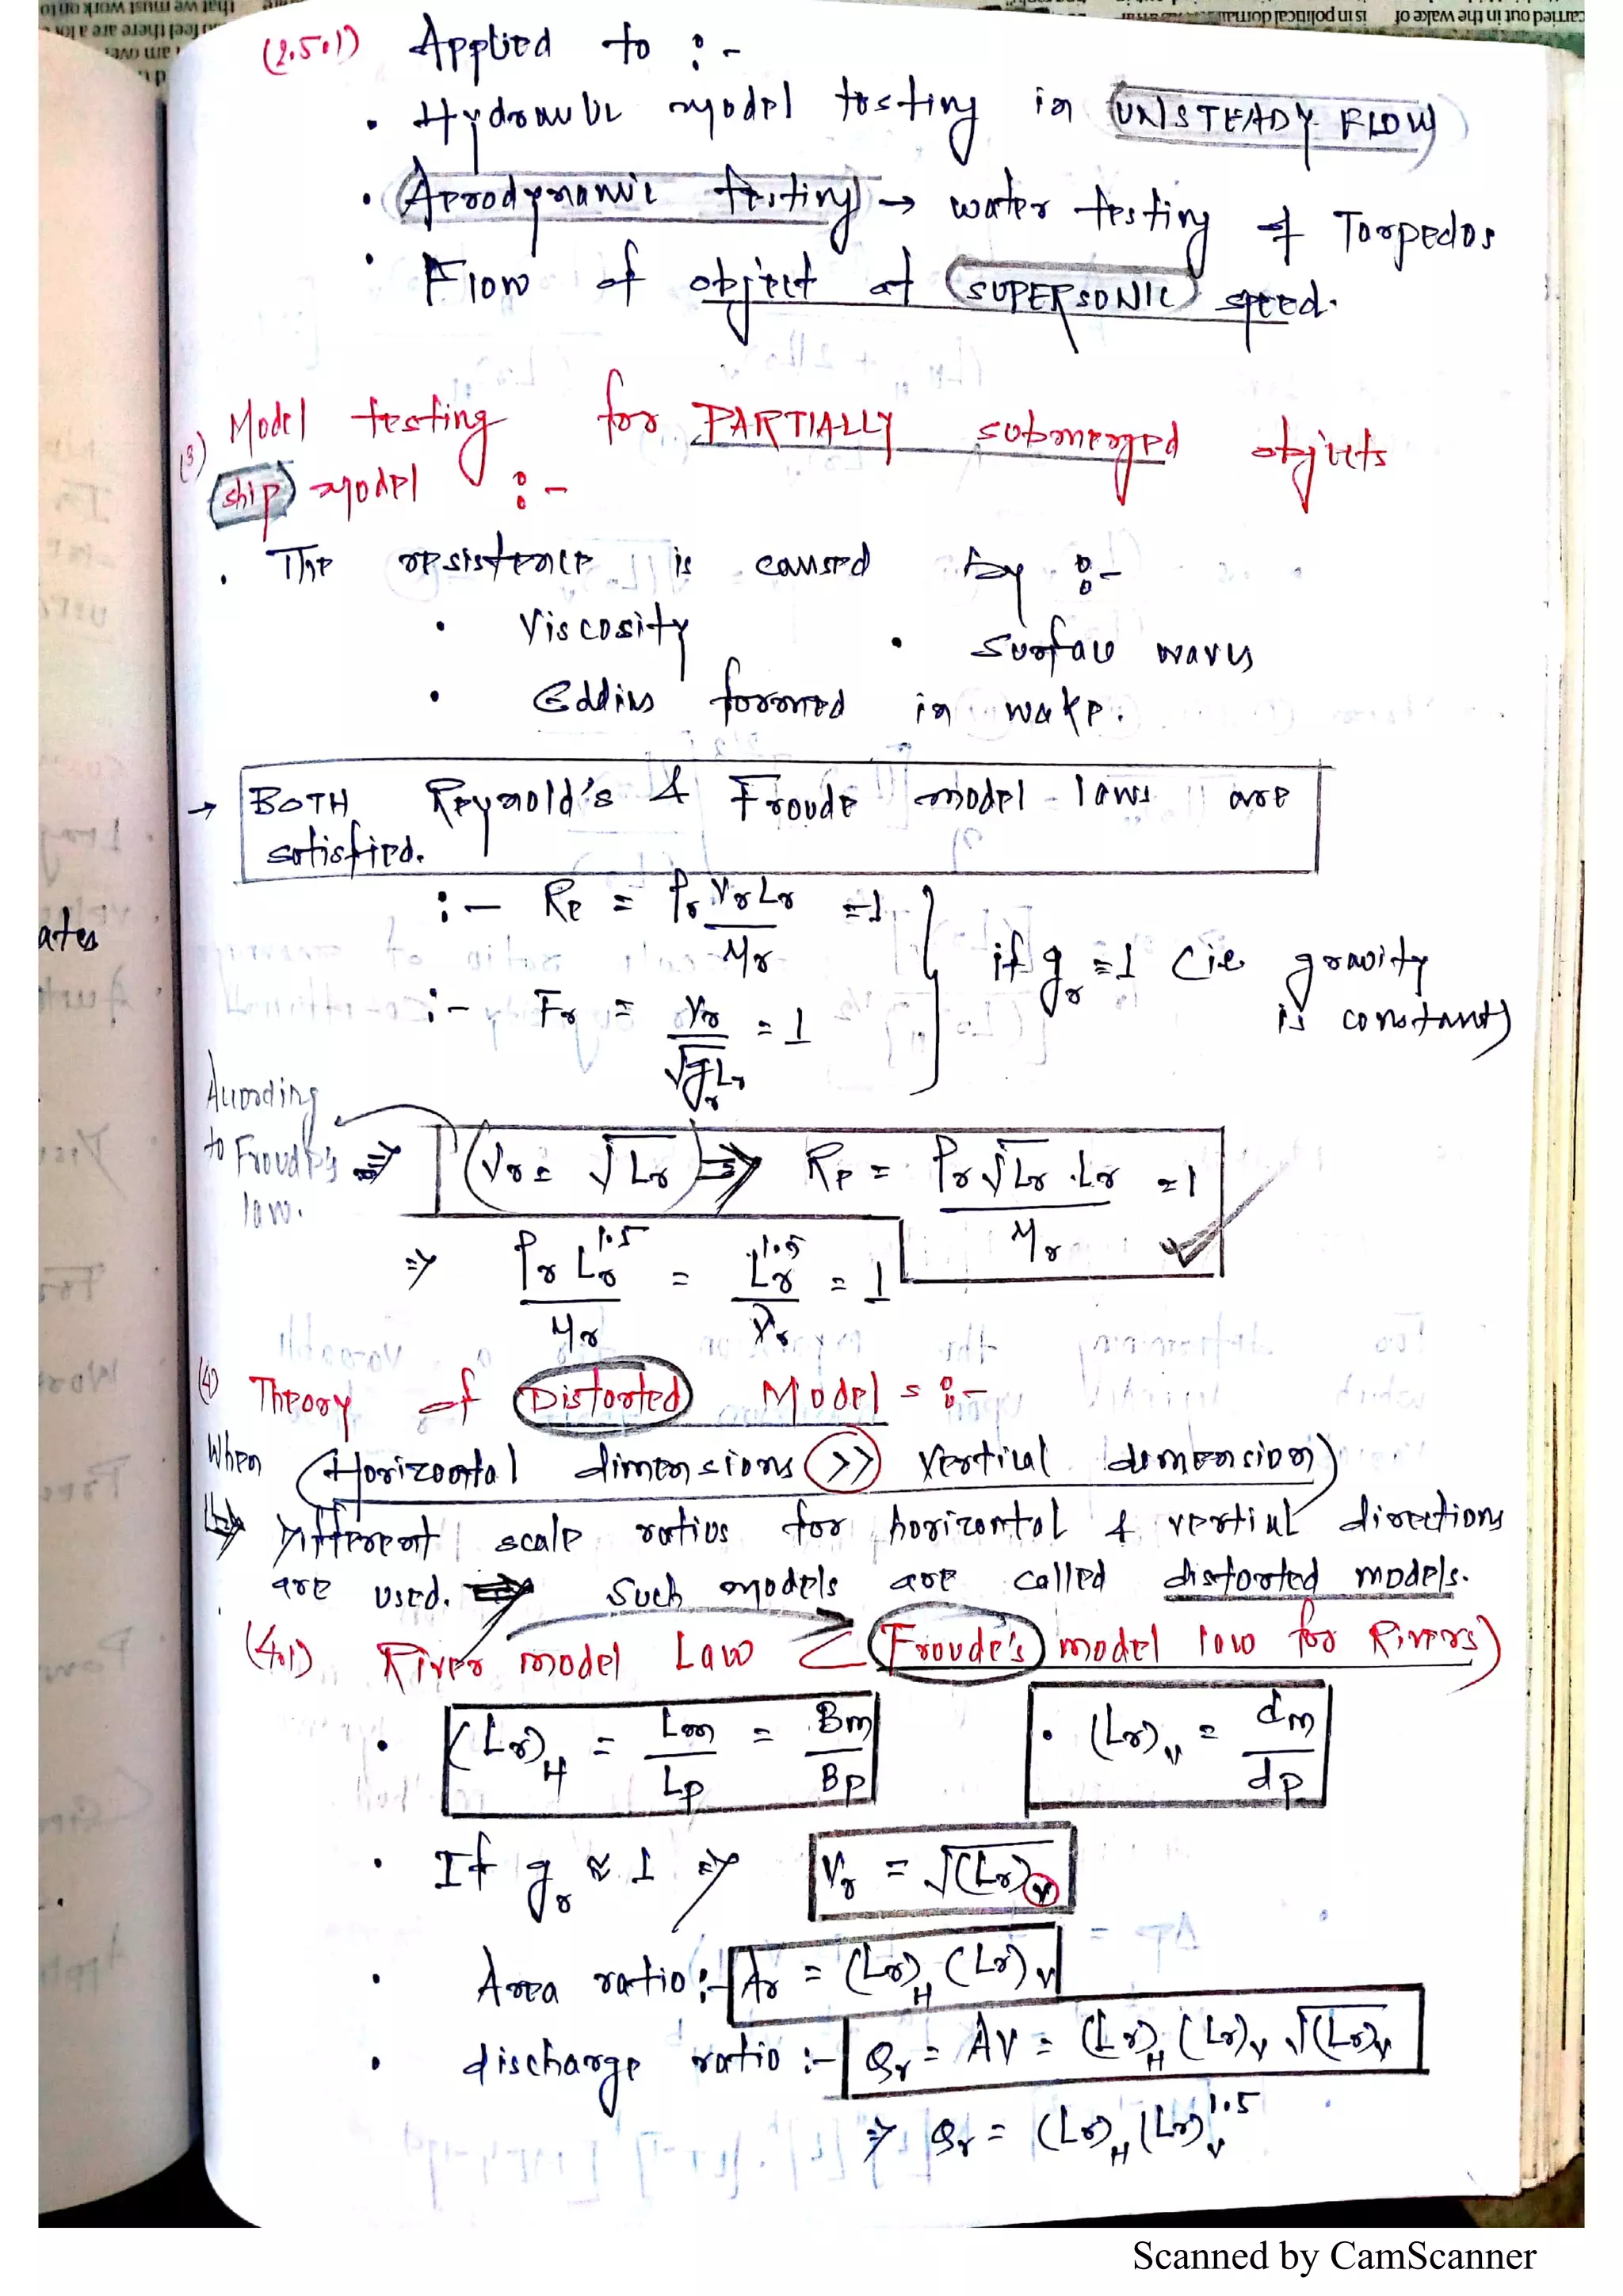 (2.5.1) Applied to :-
• Hydraulic model testing in UNSTEADY FLOW
• Aerodynamic testing → water testing of Torpedos
• Flow of object at SUPERSONIC speed.
(3) Model testing for PARTIALLY submerged objects
(ship) model :-
• The resistence is caused by :-
• Viscosity • Surface waves
• Eddies formed in wake.
→ BOTH Reynold's & Froude model laws are
satisfied.
:- Re = ρr Vr Lr / μr = 1
:- Fr = Vr / √(gr Lr) = 1
if gr = 1 (i.e gravity is constant)
According to Froude's law.
⇒ (Vr = √Lr) ⇒ Re = ρr √Lr . Lr / μr = 1
⇒ ρr Lr^1.5 / μr = Lr^1.5 / νr = 1
(4) Theory of Distorted Models :-
When (Horizontal dimensions >> vertical dimension)
↳ Different scale ratios for horizontal & vertical directions
are used. ⇒ Such models are called distorted models.
(4.1) River model Law (Froude's model law for Rivers)
• (Lr)H = Lm / Lp = Bm / Bp • (Lr)v = dm / dp
• If gr ≈ 1 ⇒ Vr = √(Lr)v
• Area ratio :- Ar = (Lr)H (Lr)v
• discharge ratio :- Qr = AV = (Lr)H (Lr)v √(Lr)v
⇒ Qr = (Lr)H (Lr)v^1.5
ates
Scanned by CamScanner